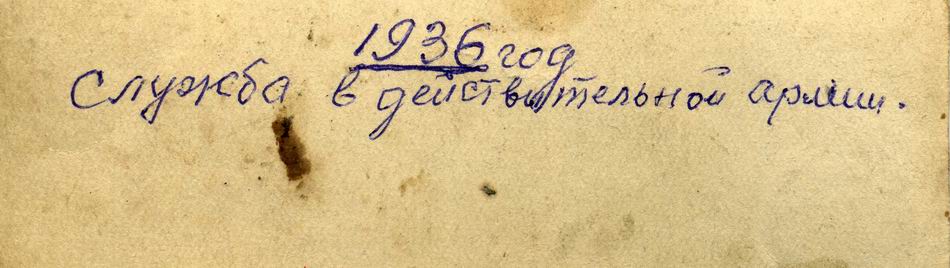 1936 год
Служба в действительной армии.